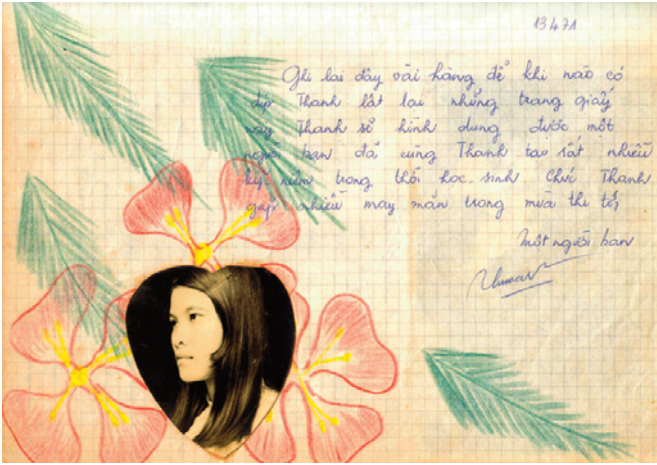 13471
Ghi lại đây vài hàng để khi nào có
dịp Thanh lật lại những trang giấy
này Thanh sẽ hình dung được một
người bạn đã cùng Thanh tạo rất nhiều
kỷ niệm trong thời học sinh. Chúc Thanh
gặp nhiều may mắn trong mùa thi tới,
Một người bạn